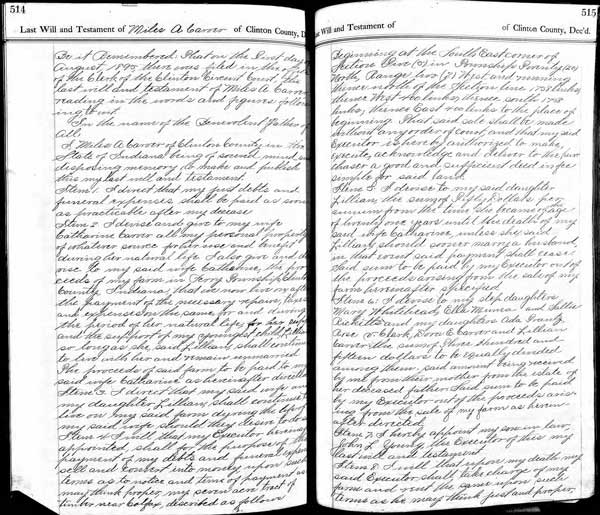 514
Last Will and Testament of Miles A Carver of Clinton County, D
Be it Remembered That on the First day
August, 1893 there was filed in the
of the Clerk of the Clinton Circuit Court, The
last will and testament of Miles A Carver
reading in the words and figures follow
ing to wit.
In the name of the Benevolent Father of
All:
I Miles A Carver of Clinton County in the
State of Indiana being of sound mind and
disposing memory do make and publish
this my last will and testament.
Item 1. I direct that my just debts and
funeral expenses, shall be paid as soon
as practicable after my decease
Item 2. I devise and give to my wife
Catharine Carver all my personal property
of whatever source for her use and benefit
during her natural life. I also give and de
vise to my said wife Catharine, the pro
ceeds of my farm in Perry Township Clinton
County, Indiana, that I now live on after
the payment of the necessary repairs, taxes
and expenses on the same for and during
the period of her natural life, for her support
and the support of my youngest child Lillian
so long as she said Lillian, shall continue
to live with her and remain unmarried
The proceeds of said farm to be paid to my
said wife Catharine as hereinafter directed
Item 3. I direct that my said wife and
my daughter Lillian, shall continue to
live on my said farm during the life of
my said wife should they desire to do so
Item 4. I will that my Executor hereinafter
appointed, shall for the purpose of the
payment of my debts and funeral expenses
sell and convert into money upon such
terms as to notice and time of payment as
may think proper, my seven acre tract of
timber near Colfax, described as follows
515
Last Will and Testament of of Clinton County, Dec'd.
Beginning at the South East corner of
Section Five (5) in Township Twenty (20)
North, Range two (2) West and running
thence north of the section line 1758 links,
thence West 400 links thence South 1758
links, thence East 400 links to the place of
beginning. That said sale shall be made
without any order of court, and that my said
Executor is hereby authorized to make,
execute, acknowledge and deliver to the pur
chaser a good and sufficient deed in fee
simple for said land.
Item 5. I devise to my said daughter
Lillian, the sum of Fifty Dollars per
annum from the time she became of age
of twenty one years until the death of my
said wife Catharine, unless she said
Lillian should sooner marry a husband,
in that event said payment shall cease.
Said sum to be paid by my Executor out of
the proceeds arising from the sale of my
farm hereinafter specified
Item 6. I devise to my step daughters
Mary Whitehead, Ella and Sallie
Ricketts and my daughters Ada Young,
Clerk, Dora E Carver and Lillian
Carver the sum of Three Hundred and
fifteen dollars to be equally divided
among them, said amount being received
by me from their mother from the estate of
her deceased father. Said sum to be paid
by my Executor out of the proceeds aris
ing from the sale of my farm as herein
after directed.
Item 7. I hereby appoint my son in law,
John L Young, the Executor of this my
last will and testament.
Item 8. I will that upon my death my
said Executor shall take charge of my
farm and rent the same upon such
terms as he may think just and proper,